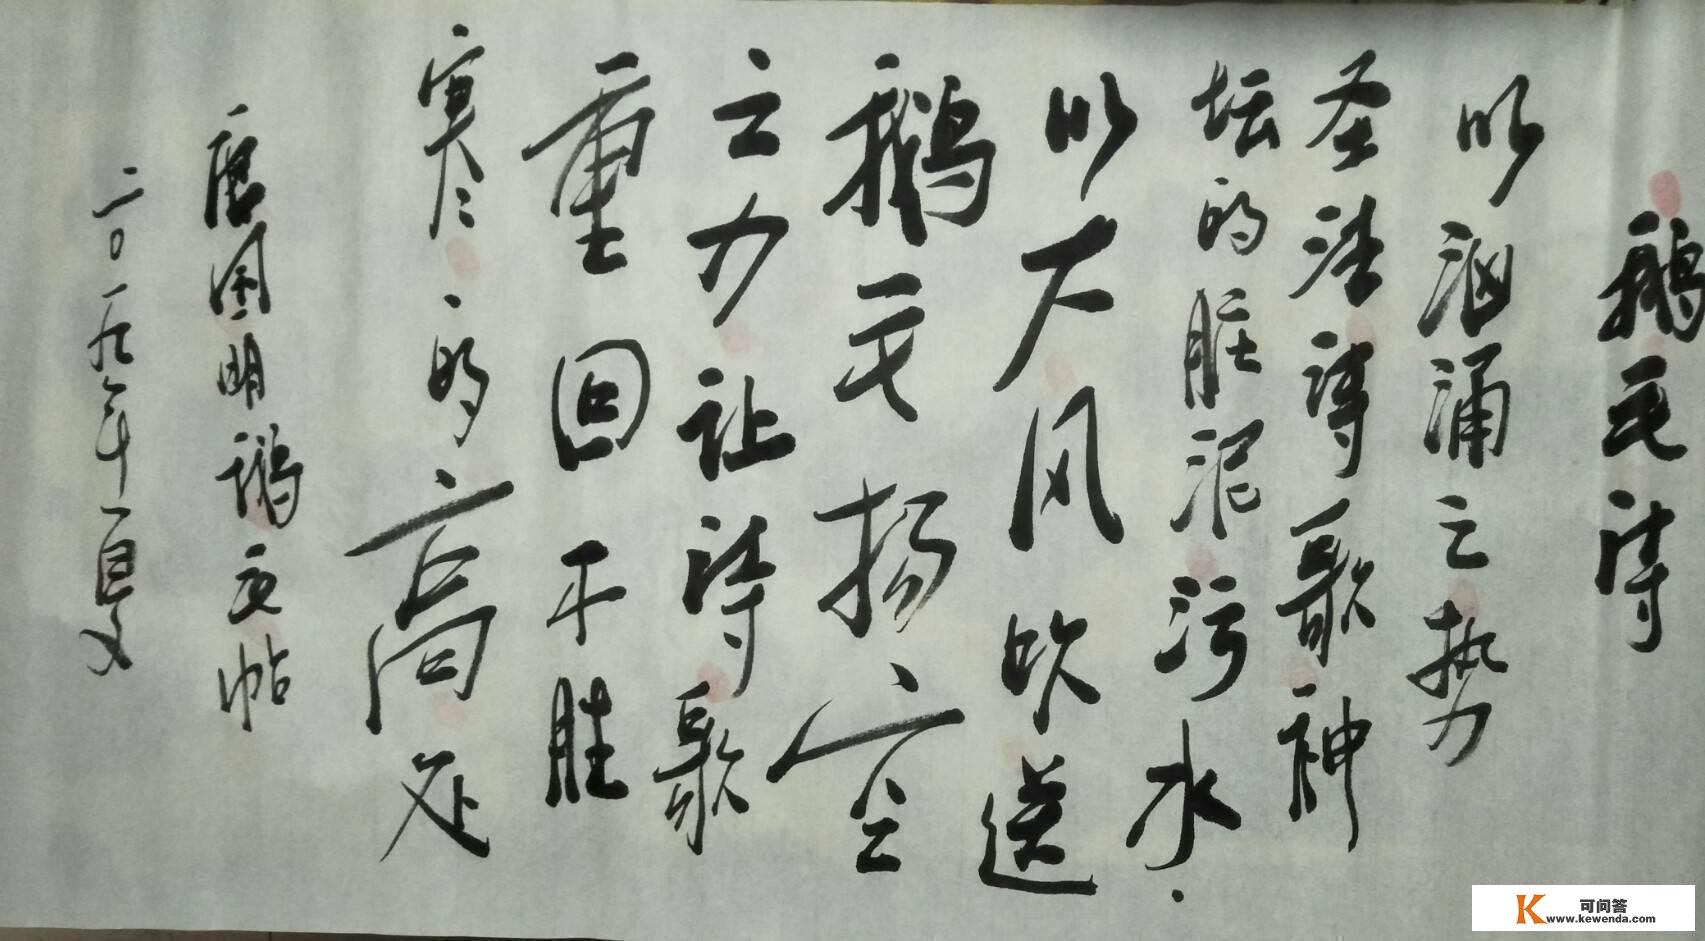 鹅毛诗
以汹涌之势
圣洁诗歌神
坛的脏泥污水.
以大风吹送
鹅毛扬空
之力让诗歌
重回不胜
寒的高处
唐国明鹅毛帖
二0一九年
K 可问答
www.kewenda.com